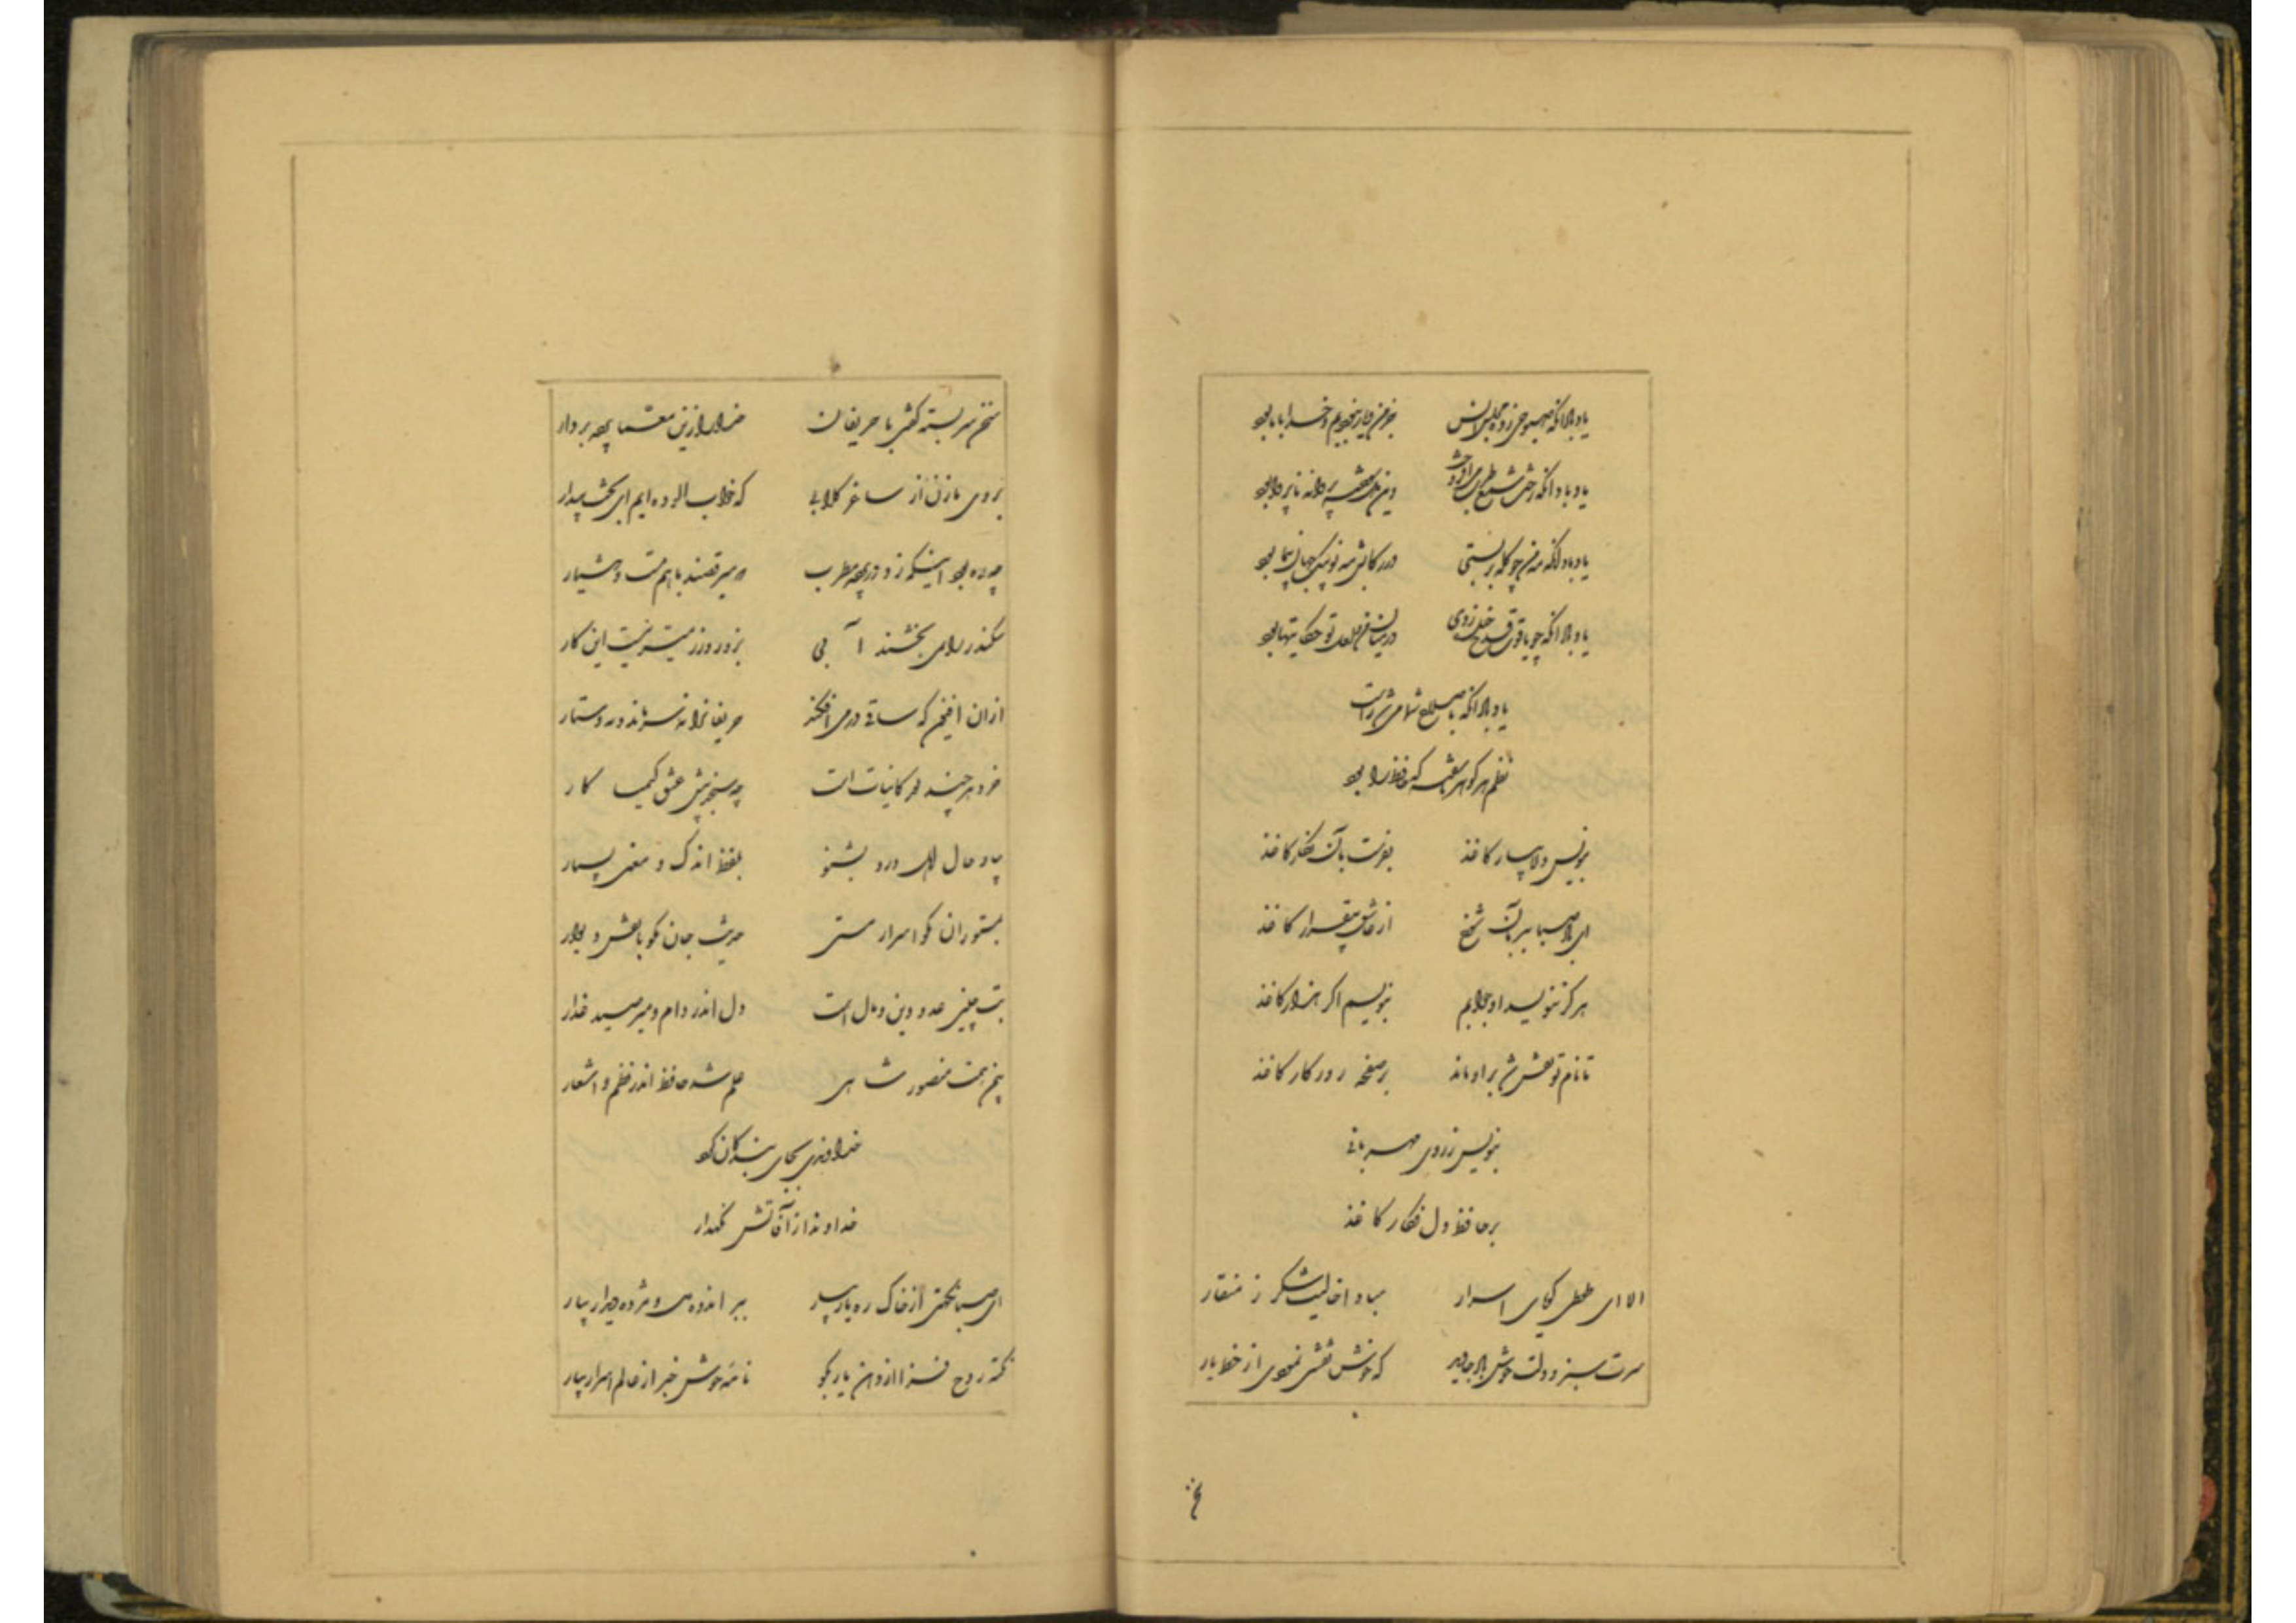 یاد باد آنکه صبوحی زده در مجلس انس جز من و یار نبودیم و خدا با ما بود
یاد باد آنکه رخت شمع طرب می افروخت وین دل سوخته پروانه ناپروا بود
یاد باد آنکه مه من چو کله بربستی در رکابش مه نو پیک جهان پیما بود
یاد باد آنکه چو یاقوت قدح خنده زدی در میان من و لعل تو حکایتها بود
یاد باد آنکه باصلاح شما می شد راست
نظم هر گوهر ناسفته که حافظ را بود
بنویس دلا بیار کاغذ بفرست بآن نگار کاغذ
ای باد صبا ببر بآن شوخ از عاشق بیقرار کاغذ
هرگز ننویسد او جوابم بنویسم اگر هزار کاغذ
تا نام تو نقش شد بر او ماند بر صفحه روزکار کاغذ
بنویس ز روی مهربانی
بر حافظ دل فکار کاغذ
الا ای طوطی کویای اسرار مبادا خالیت شکر ز منقار
سرت سبز و دلت خوش باد جاوید که خوش نقشی نمودی از خط یار
سخن سربسته کفتی با حریفان خدا را زین معما پرده بردار
بروی ما زن از ساغر کلابی که خواب آلوده ایم ای بخت بیدار
چه ره بود اینکه زد در پرده مطرب که میرقصند با هم مست و هشیار
سکندر را نمی بخشند آبی بزور و زر میسر نیست این کار
از آن افیون که ساقی در می افکند حریفانرا نه سر ماند و نه دستار
خرد هر چند نقد کاینات است چه سنجد پیش عشق کیمیا کار
بیا و حال اهل درد بشنو بلفظ اندک و معنی بسیار
بمستوران مکو اسرار مستی حدیث جان مکو با نقش دیوار
بت چینی عدو دین و دل است دل اندر دام و میر صید غدار
بیمن همت منصور شاهی علم شد حافظ اندر نظم و اشعار
خداوندی بجای بندکان کرد
خداوندا ز آفاتش نکهدار
ای صبا نکهتی از خاک ره یار بیار ببر اندوه دل و مژده دیدار بیار
نکته روح فزا از دهن یار بکو نامه خوش خبر از عالم اسرار بیار